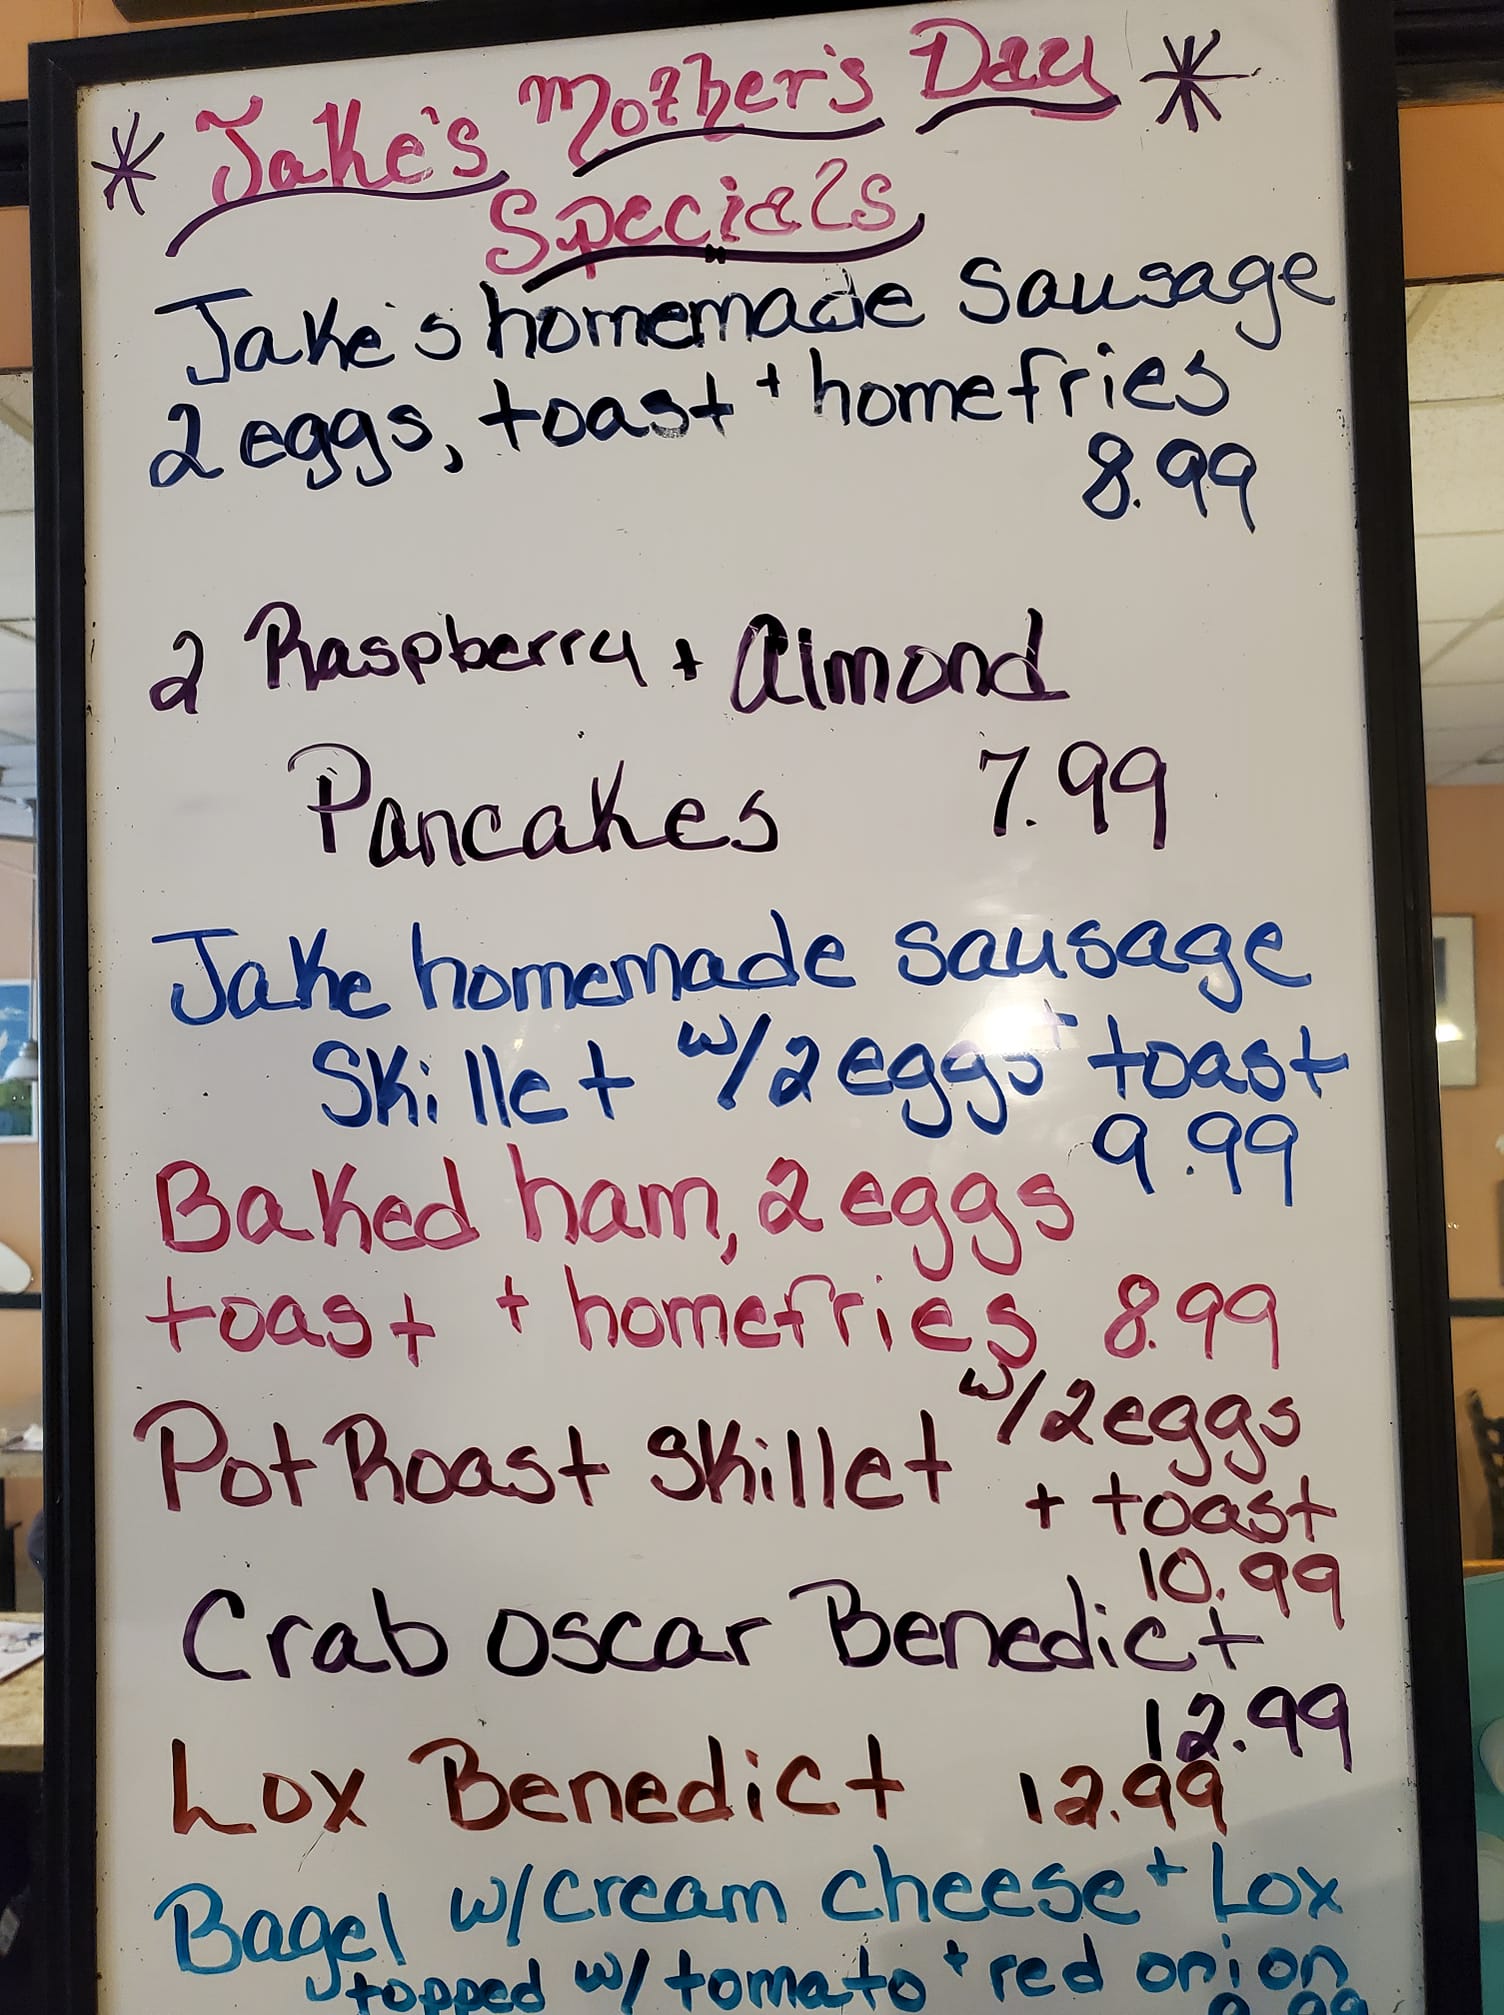 * Jake's Mother's Day *
Specials
Jake's homemade sausage
2 eggs, toast + homefries
8.99
2 Raspberry + Almond
Pancakes 7.99
Jake homemade sausage
Skillet w/2 eggs + toast
9.99
Baked ham, 2 eggs
toast + homefries 8.99
Pot Roast Skillet w/2 eggs
+ toast
10.99
Crab oscar Benedict
12.99
Lox Benedict 12.99
Bagel w/cream cheese + Lox
topped w/ tomato + red onion